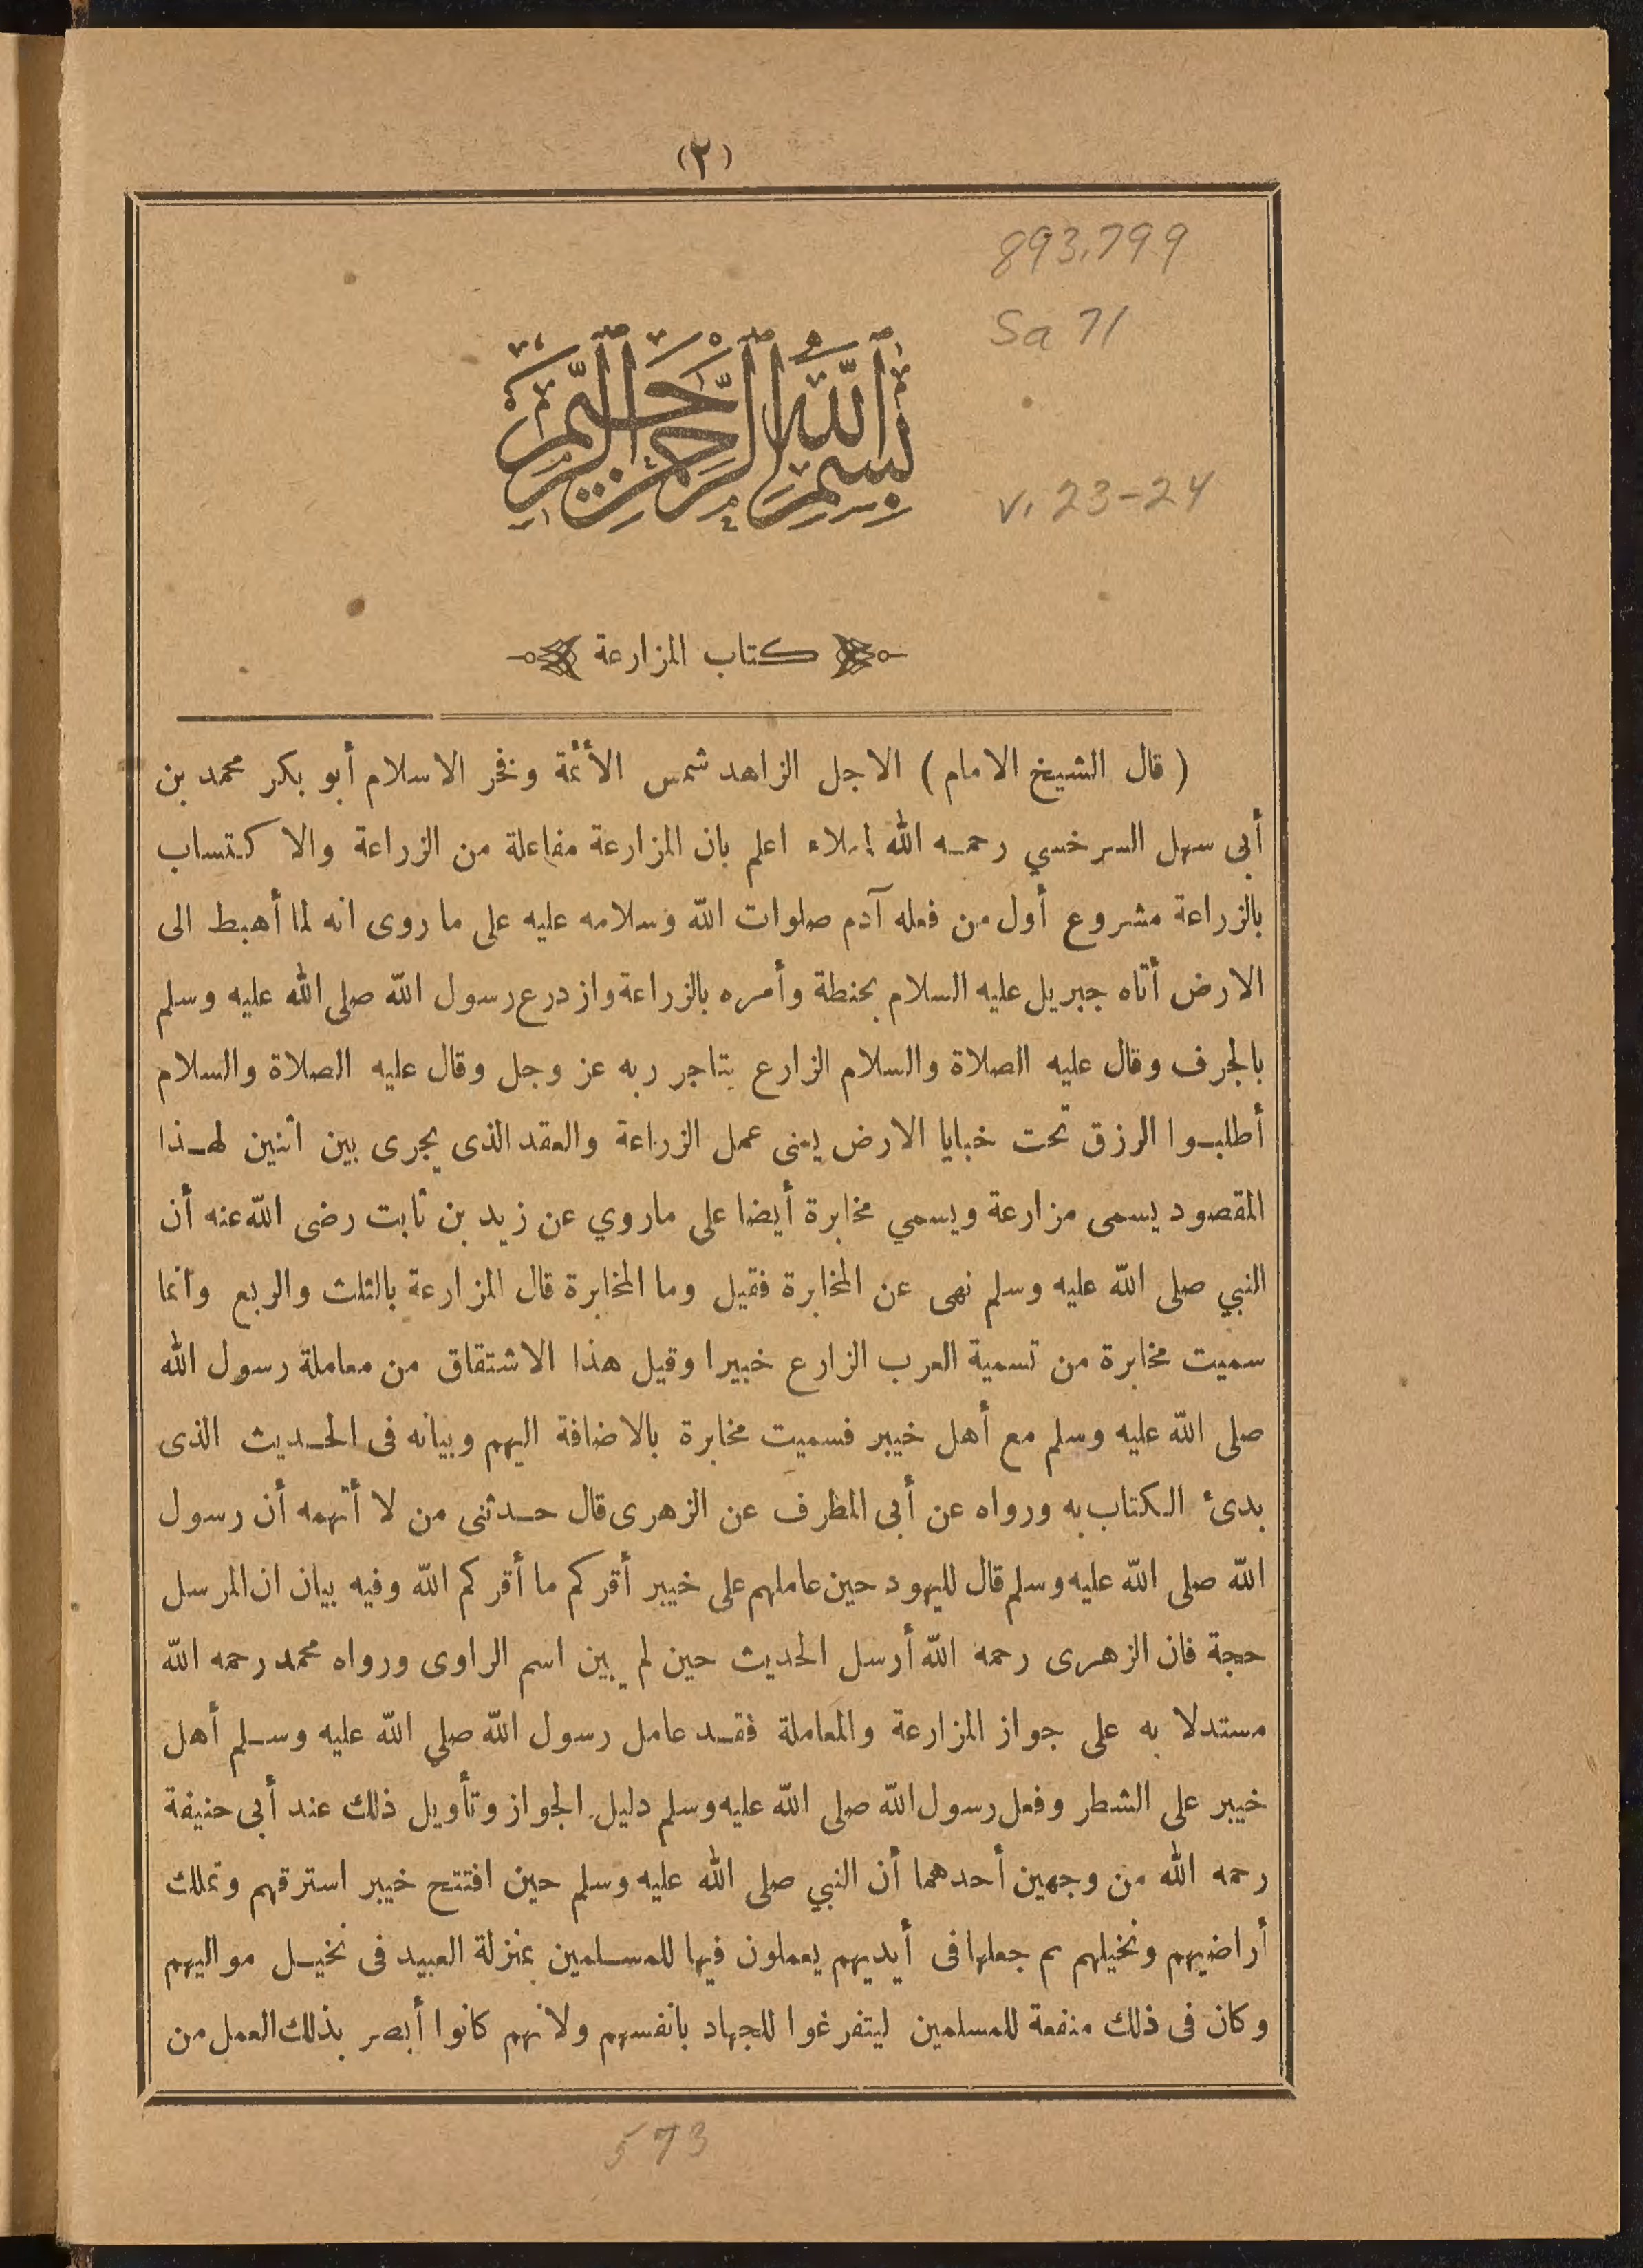 (٢)
893.799
Sa 71
بِسْمِ ٱللَّهِ ٱلرَّحْمَٰنِ ٱلرَّحِيمِ
v. 23-24
كتاب المزارعة
( قال الشيخ الامام ) الاجل الزاهد شمس الأئمة وفخر الاسلام أبو بكر محمد بن
أبى سهل السرخسي رحمه الله إملاء اعلم بان المزارعة مفاعلة من الزراعة والاكتساب
بالزراعة مشروع أول من فعله آدم صلوات الله وسلامه عليه على ما روى انه لما أهبط الى
الارض أتاه جبريل عليه السلام بحنطة وأمره بالزراعة وازدرع رسول الله صلى الله عليه وسلم
بالجرف وقال عليه الصلاة والسلام الزارع يتاجر ربه عز وجل وقال عليه الصلاة والسلام
أطلبوا الرزق تحت خبايا الارض يعنى عمل الزراعة والعقد الذى يجرى بين اثنين لهذا
المقصود يسمى مزارعة ويسمي مخابرة أيضا على ماروي عن زيد بن ثابت رضى الله عنه أن
النبي صلى الله عليه وسلم نهى عن المخابرة فقيل وما المخابرة قال المزارعة بالثلث والربع وانما
سميت مخابرة من تسمية العرب الزارع خبيرا وقيل هذا الاشتقاق من معاملة رسول الله
صلى الله عليه وسلم مع أهل خيبر فسميت مخابرة بالاضافة اليهم وبيانه فى الحديث الذى
بدئ الكتاب به ورواه عن أبى المطرف عن الزهرى قال حدثنى من لا أتهمه أن رسول
الله صلى الله عليه وسلم قال لليهود حين عاملهم على خيبر أقركم ما أقركم الله وفيه بيان ان المرسل
حجة فان الزهرى رحمه الله أرسل الحديث حين لم يبين اسم الراوى ورواه محمد رحمه الله
مستدلا به على جواز المزارعة والمعاملة فقد عامل رسول الله صلي الله عليه وسلم أهل
خيبر على الشطر وفعل رسول الله صلى الله عليه وسلم دليل الجواز وتأويل ذلك عند أبى حنيفة
رحمه الله من وجهين أحدهما أن النبي صلى الله عليه وسلم حين افتتح خيبر استرقهم وتملك
أراضيهم ونخيلهم ثم جعلها فى أيديهم يعملون فيها للمسلمين بمنزلة العبيد فى نخيل مواليهم
وكان فى ذلك منفعة للمسلمين ليتفرغوا للجهاد بانفسهم ولانهم كانوا أبصر بذلك العمل من
573